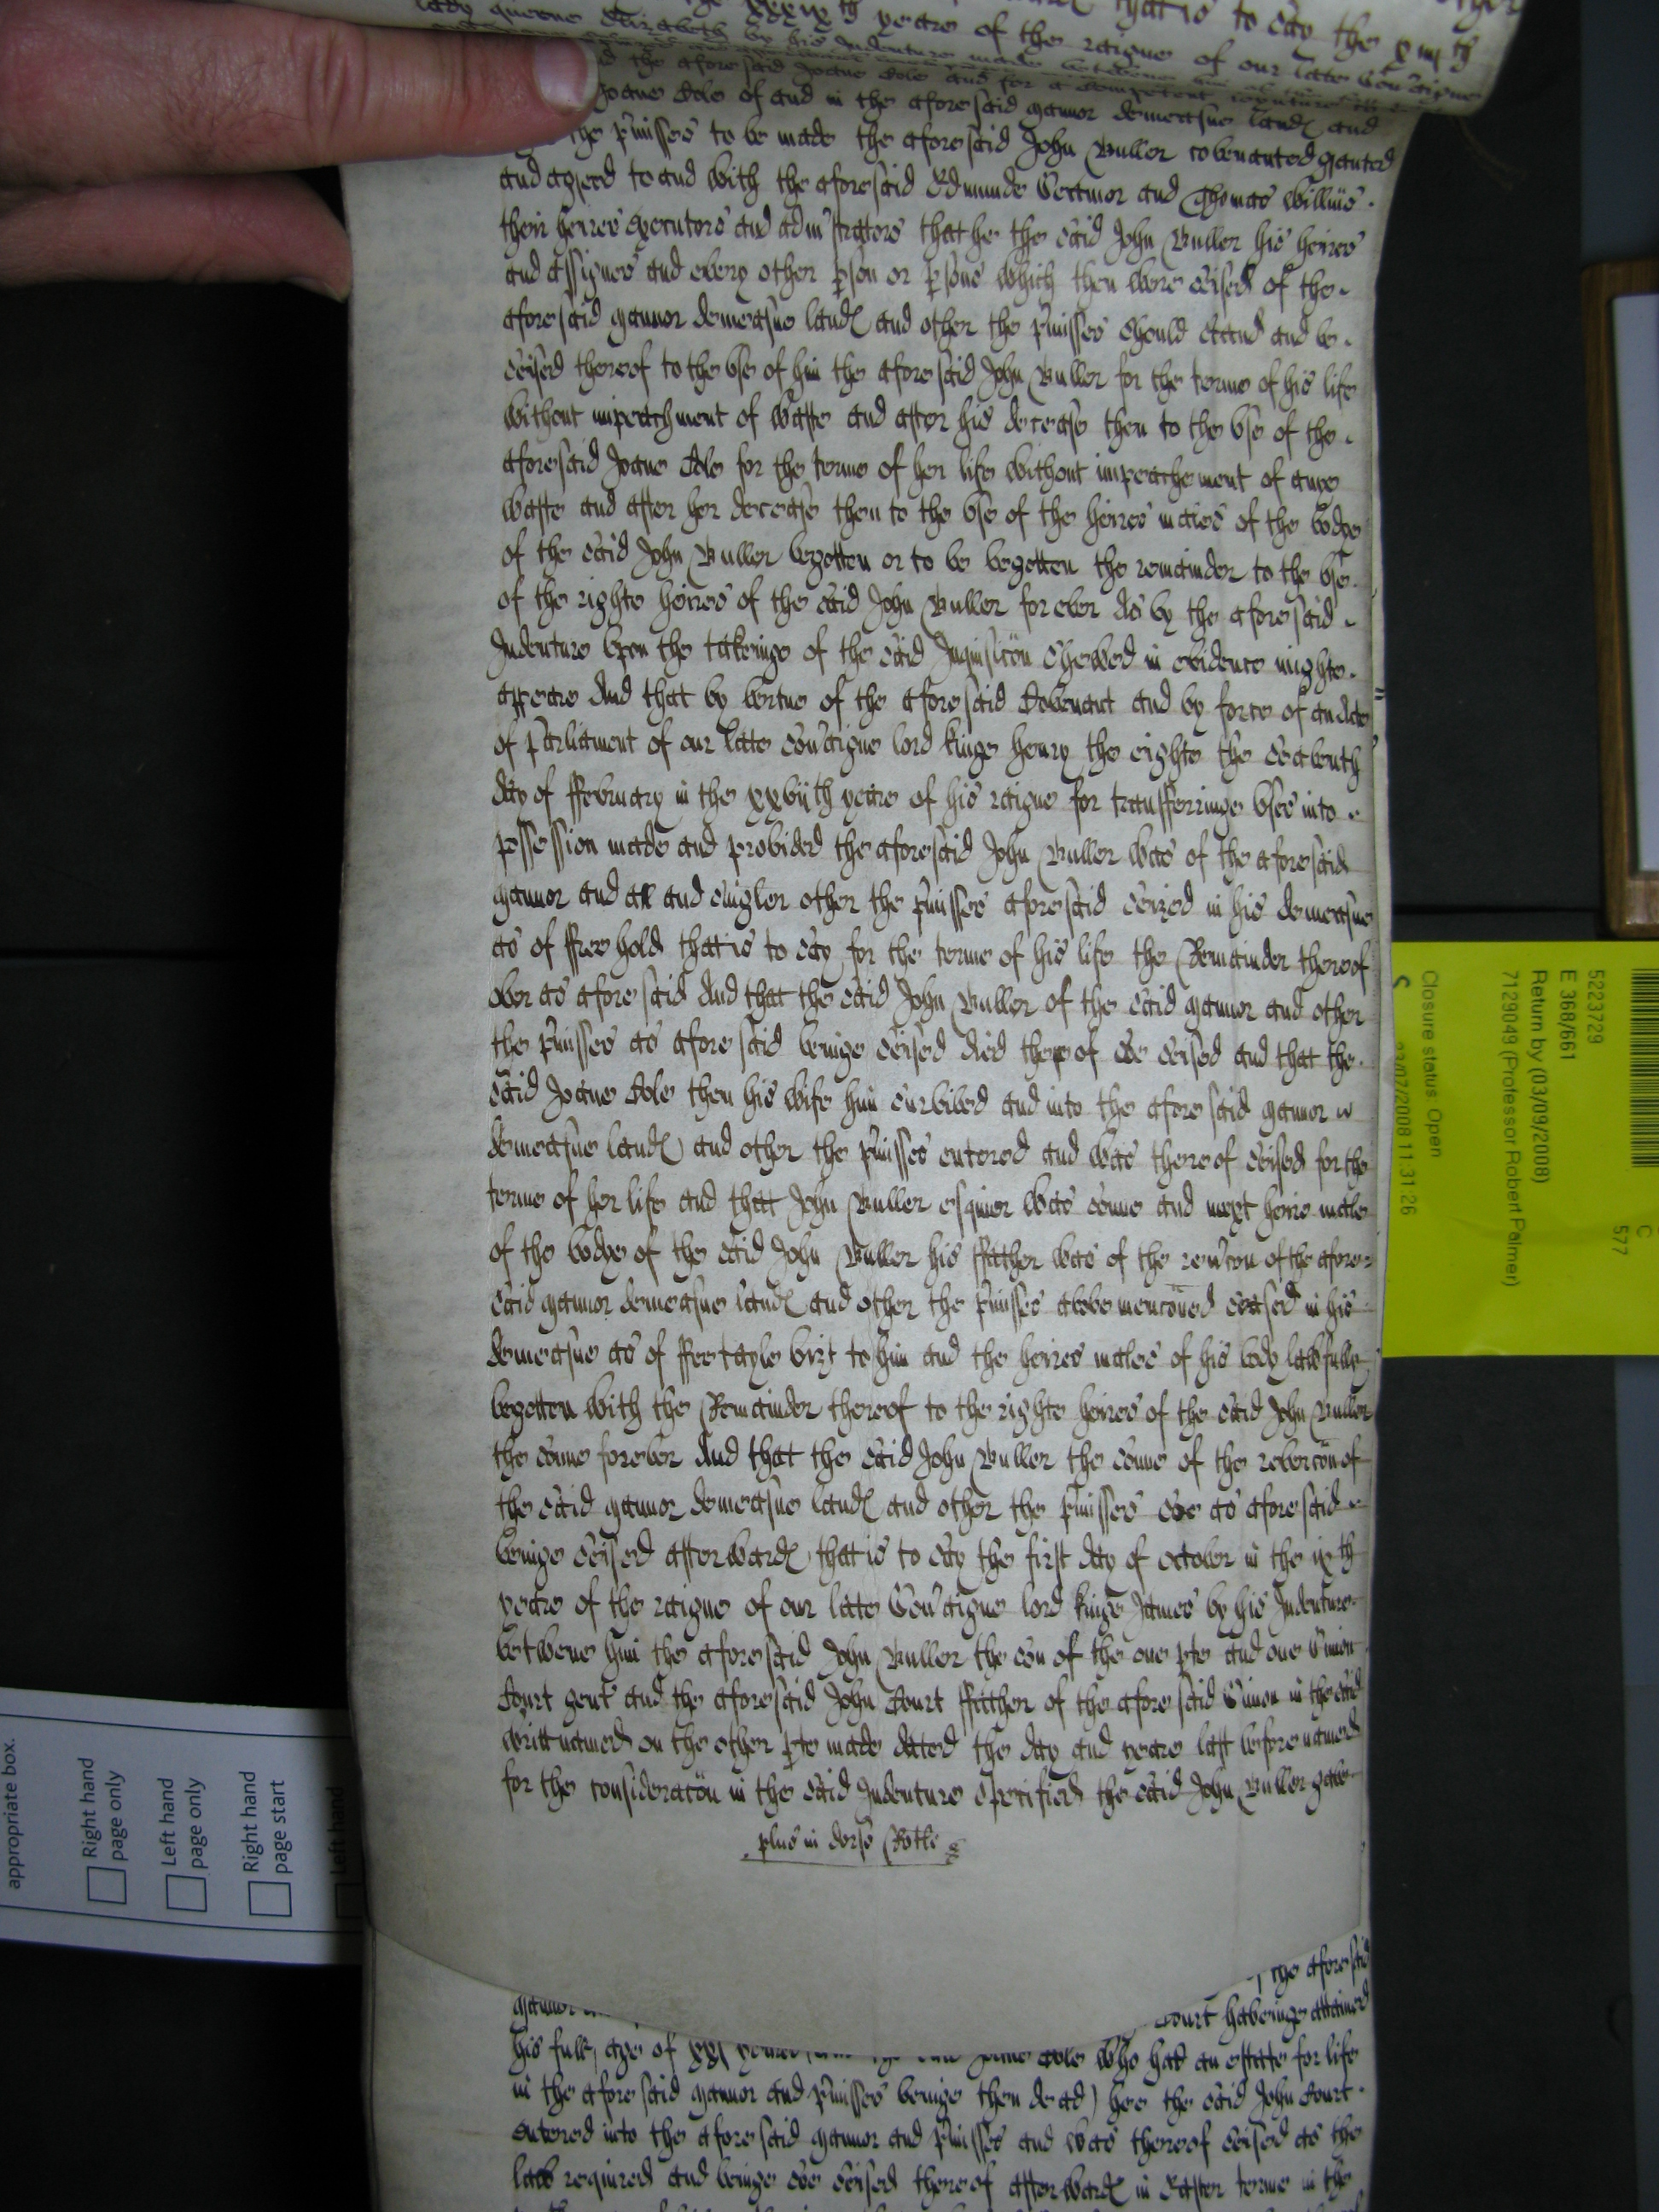 that is to say the xiiijth
lady queene Elizabeth by his Indenture made betwene
the xxxixth yeare of the raigne of our late Sou'aigne
the aforesaid Joane Cole and for a competent joynture to
Joane Cole of and in the aforesaid mannor demeasne landℓ and
the p'misses to be made the aforesaid John Buller covenanted graunted
and agreed to and with the aforesaid Edmunde Seamor and Thomas Willms
their heires executors and administrators that he the said John Buller his heires
and assignes and every other p'son or p'sons which then were seised of the
aforesaid mannor demeasne landℓ and other the p'misses should stand and be
seised thereof to the use of him the aforesaid John Buller for the terme of his life
without impeachment of waste and after his decease then to the use of the
aforesaid Joane Cole for the terme of her life without impeachement of anye
waste and after her decease then to the use of the heires males of the bodye
of the said John Buller begotten or to be begotten the remainder to the use
of the righte heires of the said John Buller for ever As by the aforesaid
Indenture upon the takeinge of the said Inquisic̃on shewed in evidence mighte
appeare And that by vertue of the aforesaid Covenant and by force of an Acte
of p'liament of our late sou'aigne lord kinge Henry the eighte the seaventh
day of ffebruary in the xxvijth yeare of his raigne for transferringe uses into
possession made and provided the aforesaid John Buller was of the aforesaid
mannor and all and singler other the p'misses aforesaid seized in his demeasne
as of ffree hold that is to say for the terme of his life the Remainder thereof
over as aforesaid And that the said John Buller of the said mannor and other
the p'misses as aforesaid beinge seised died thereof soe seised and that the
said Joane Cole then his wife him survived and into the aforesaid mannor
demeasne landℓ and other the p'misses entered and was thereof seised for the
terme of her life and that John Buller esquier was sonne and next heire male
of the bodye of the said John Buller his ffather was of the reu'c̃on of the afore-
said mannor demeasne landℓ and other the p'misses above menc̃oned seased in his
demeasne as of ffee tayle vizt to him and the heires males of his body lawfully
begotten with the Remainder thereof to the righte heires of the said John Buller
the sonne forever And that the said John Buller the sonne of the reverc̃on of
the said mannor demeasne landℓ and other the p'misses soe as aforesaid
beinge seised afterwardℓ that is to say the first day of October in the ixth
yeare of the raigne of our late Sou'aigne lord kinge James by his Indenture
betwene him the aforesaid John Buller the son of the one p'te and one Simon
Court gent' and the aforesaid John Court ffather of the aforesaid Simon in the said
writt named on the other p'te made dated the day and yeare last before named
for the considerac̃on in the said Indenture specified the said John Buller gave
plus in dorso Rotli
the aforesaid
mannor Court haveinge attained
his full age of xxj yeares Joane Cole who had an estate for life
in the aforesaid mannor and p'misses beinge then dead) hee the said John Court
entered into the aforesaid mannor and p'misses and was thereof seised as the
law required and beinge soe seised thereof afterwardℓ in Easter terme in the
5223729
E 368/661
Return by (03/09/2008)
7129049 (Professor Robert Palmer)
Closure status: Open
/07/2008 11:31:26
C
577
appropriate box.
Right hand
page only
Left hand
page only
Right hand
page start
Left hand